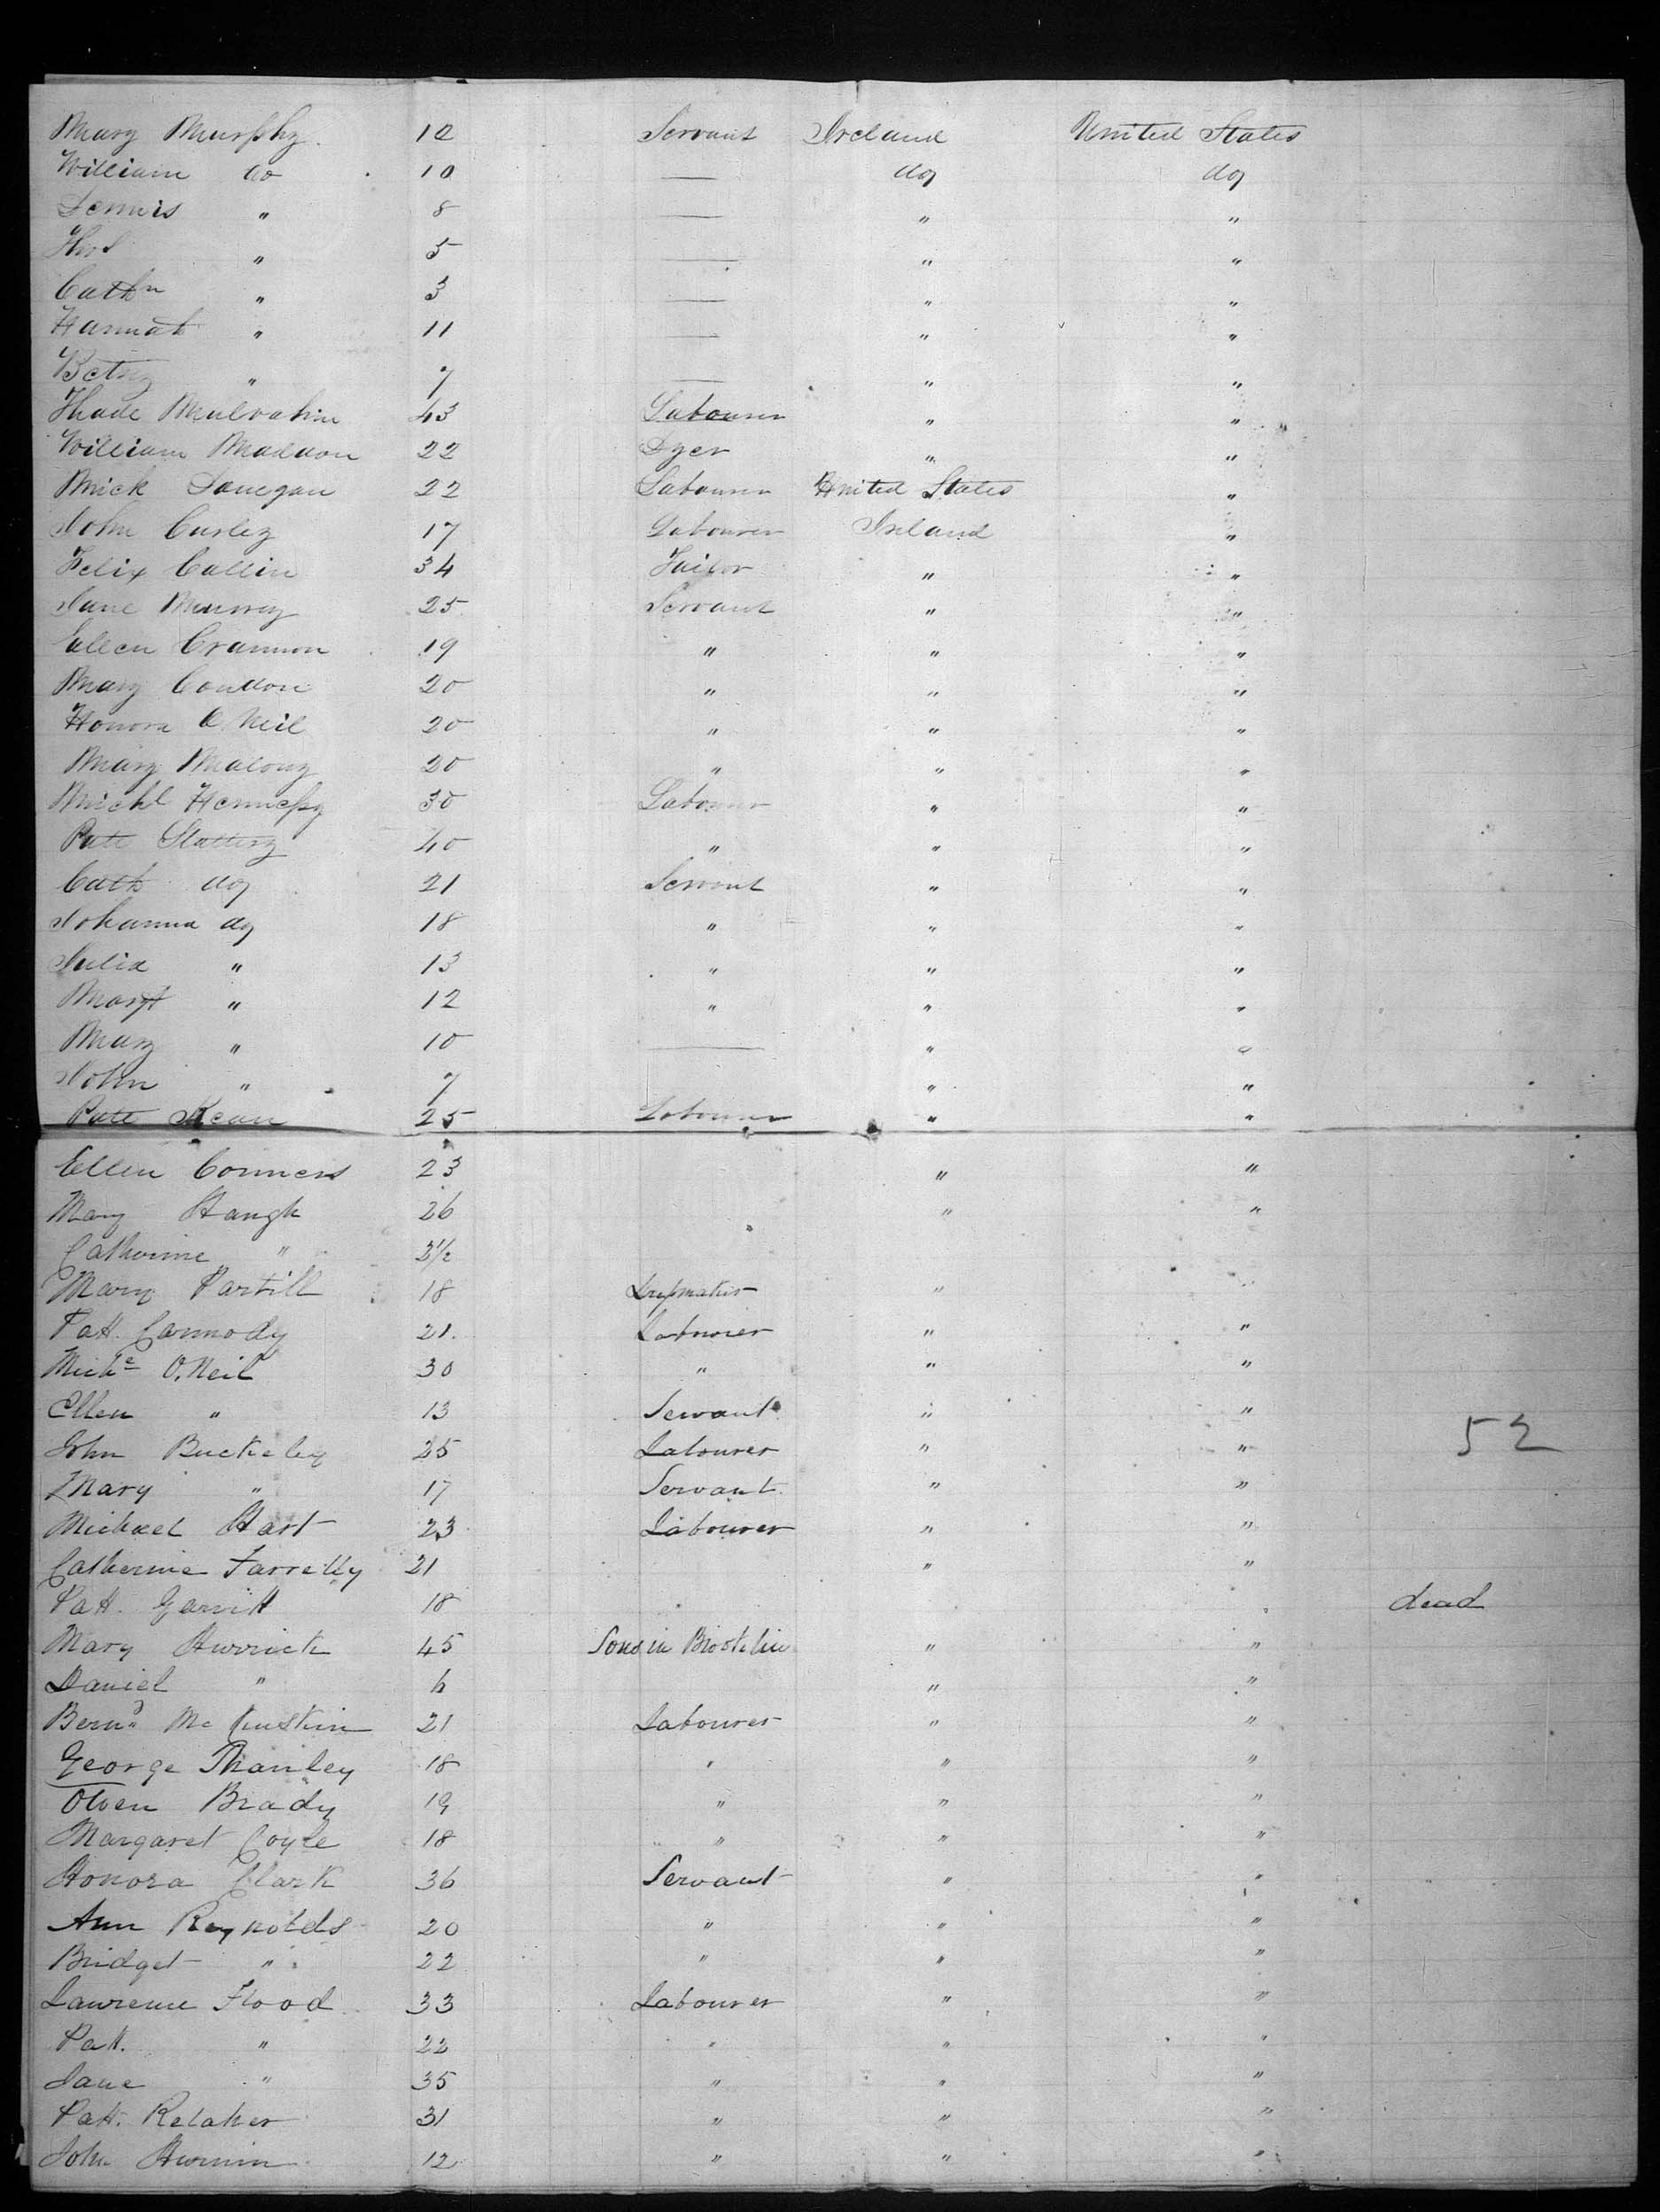 Mary Murphy 12 Servant Ireland United States
William do 10 — do do
Dennis " 8 — " "
" 5 — " "
Cathn " 3 — " "
Hannah " 11 — " "
Betsy " 7 — " "
Thade Mulvahin 43 Labourer " "
William Maddon 22 Dyer " "
Mick Donegan 22 Labourer United States "
John Curley 17 Labourer Ireland "
Felix Callin 34 Tailor " "
Jane Murray 25 Servant " "
Ellen Crannon 19 " " "
Mary Condon 20 " " "
Honora O Neil 20 " " "
Mary Malony 20 " " "
Michl Hennessy 30 Labourer " "
Patt Slattery 40 " " "
Cath do 21 Servant " "
Johanna do 18 " " "
Julia " 13 " " "
Margt " 12 " " "
Mary " 10 — " "
John " 7 " "
Patt Kean 25 Labourer " "
Ellen Conners 23 " "
Mary Haugh 26 " "
Catherine " 3½
Mary Partill 18 Dressmaker "
Patt. Carmody 21. Labourer " "
Mich O.Neil 30 " " "
Ellen " 13 Servant " "
John Buckeley 25 Labourer " " 52
Mary " 17 Servant. " "
Michael Hart 23 Labourer " "
Catherine Farrelly 21 " "
Patt. 18 dead
Mary Hurrick 45 Sons in Brooklin " "
Daniel " 6 " "
Bernd Mc 21 Labourer " "
George Thanley 18 " " "
Owen Brady 19 " " "
Margaret Coyle 18 " " "
Honora Clark 36 Servant " "
Ann Reynolds 20 " " "
Bridget " 22 " " "
Lawrence Flood 33 Labourer " "
Patt. " 22 " " "
Jane " 35 " " "
Patt. Kelaher 31 " " "
John 12 " " "